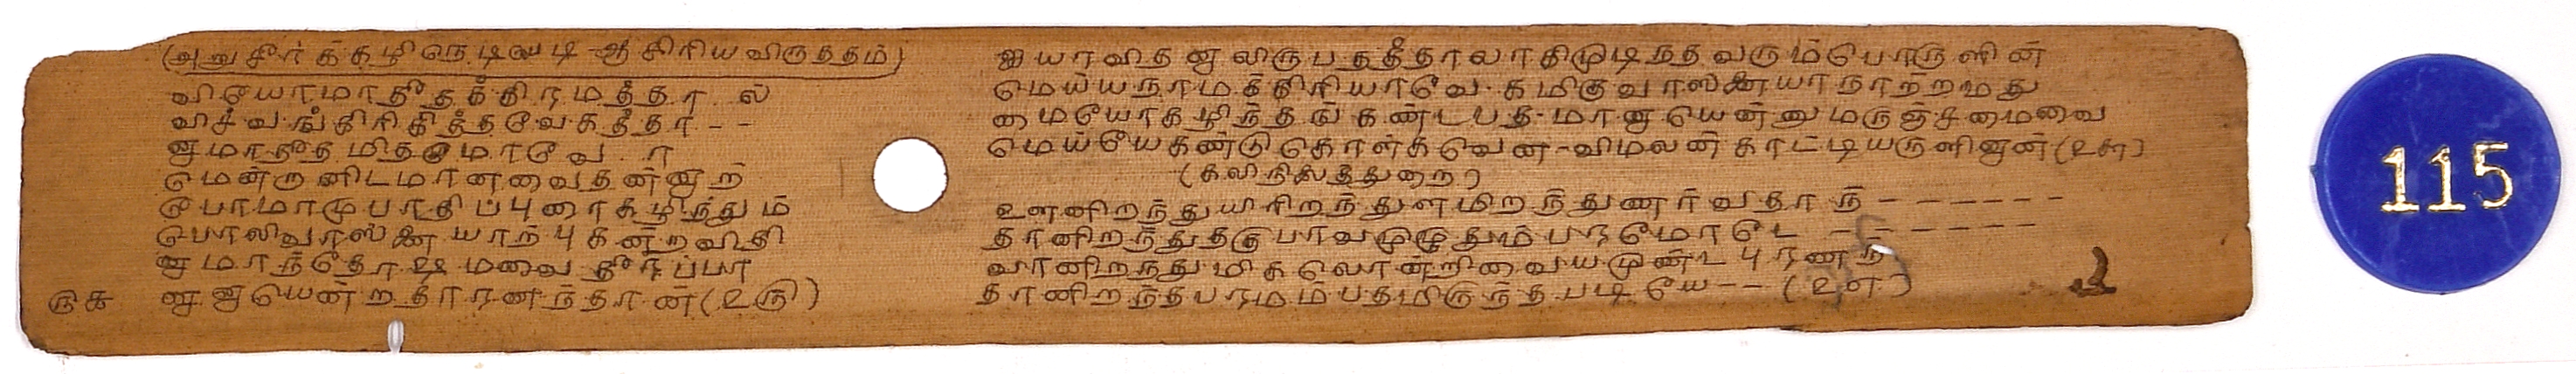 (அறுசீர்க்கழிநெடிலடி-ஆசிரியவிருத்தம்)
வியோமாதீதக்கிரமத்தா ல்
விச்வங்கிரிகித்தவேகத்தா--
னுமாதீத மிதமுமாவே. ா
மென்று னிடமானவைதன்னுற்
ரூபாமாமுபாதிப்புரைகழிந்தும்
பொலிவாஸனை யாற்புகன்றவிதி
னுமாந்தோஷ மவை தீர்ப்பா
ருசு னுனுயென்ற தாரணந்தான்(உரு)
ஐயாவிதனுலிருபதத்தீதாலாகிமுடிந்தவரும்பொருளின்
மெய்யநாமக்கிரியாவே-கமிகுவாஸனையாநாற்றமது
மையோகழிந்தங்கண்டபத-மானுயென்னுமருஞ்சுமைவை
மெய்யேகண்டுகொள்கவென-விமலன்காட்டியருளினுன்(உசு)
(கலிநிலத்துறை)
ஊனிறந்துயிரிறந்துளமிறந்துணர்வதாந்------
தானிறந்துதகுபாவமுழுதும்பரமோடே ------
வானிறந்துமிகலொன்றிவையமுண்டபுரணந்
தானிறந்தபரமம்பதமிருந்தபடியே-- (உஎ)
115